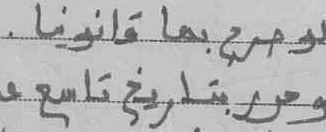 لو صرح بها قانونيا.
وحرر بتاريخ تاسع